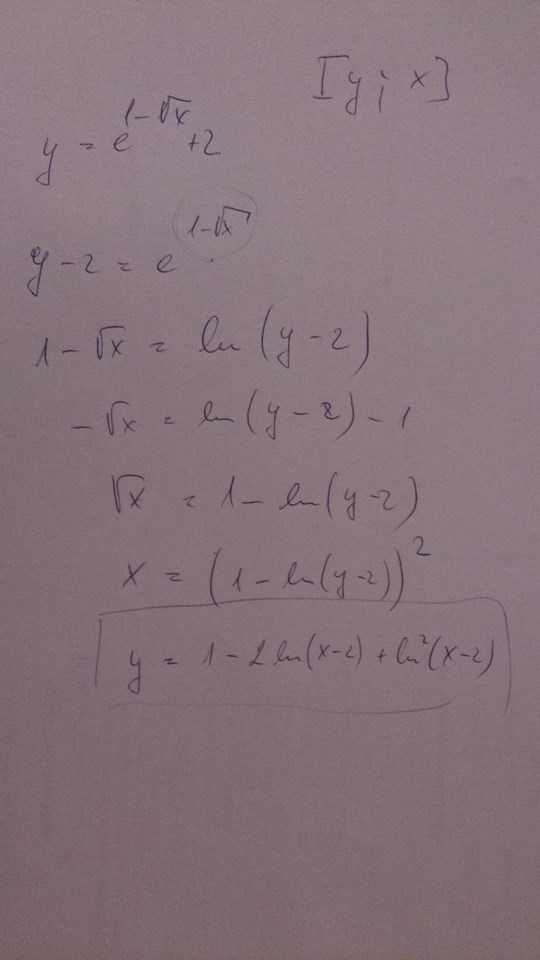 [y; x]
y = e^{1-√x} + 2
y - 2 = e^{1-√x}
1 - √x = ln(y - 2)
- √x = ln(y - 2) - 1
√x = 1 - ln(y - 2)
x = (1 - ln(y - 2))^2
y = 1 - 2 ln(x - 2) + ln^2(x - 2)